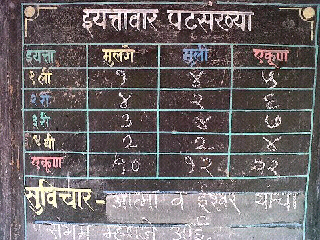 इयत्तावार पटसंख्या
इयत्ता मुलगे मुली एकूण
१ली १ ४ ५
२री ४ २ ६
३री ३ ४ ७
४थी २ २ ४
एकूण १० १२ २२
सुविचार - आत्मा व ईश्वर यांच्या
म्हणजे